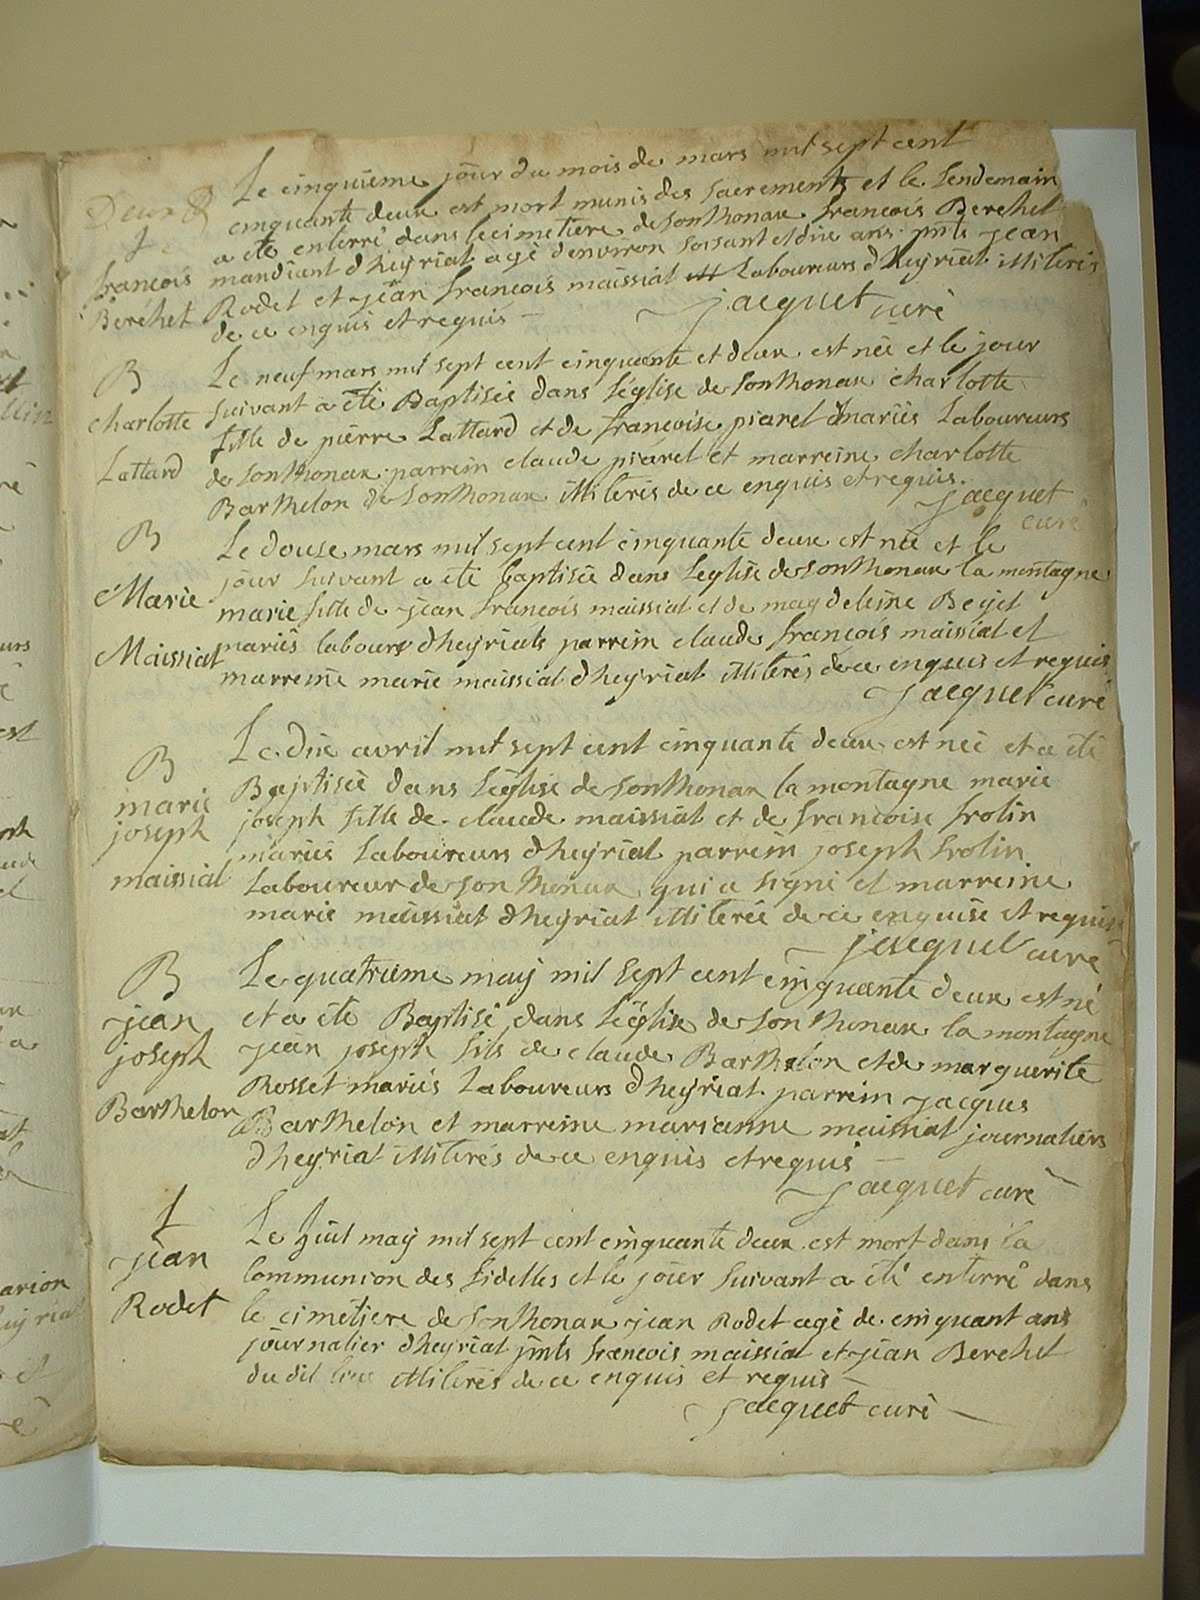 Deux
Le cinquieme jour du mois de mars mil sept cent
cinquante deux est mort munis des sacrements et le lendemain
a été enterré dans le cimetiere de Sonthonax francois Berchet
mandiant dheyriat agé denviron soisant et dix ans pnts jean
Rodet et jean francois maissiat Laboureurs dheyriat illiterés
de ce enquis et requis
jacquet curé
francois
Berchet
B
charlotte
Lattard
Le neuf mars mil sept cent cinquante et deux est née et le jour
suivant a été Baptisée dans l'église de Sonthonax charlotte
fille de pierre Lattard et de francoise piarel mariés Laboureurs
de Sonthonax parrein claude piarel et marreine charlotte
Barthelon de Sonthonax illiterés de ce enquis et requis.
jacquet
curé
B
Marie
Maissiat
Le douse mars mil sept cent cinquante deux est née et le
jour suivant a été baptisée dans leglise de Sonthonax la montagne
marie fille de jean francois maissiat et de magdeleine Beyet
mariés labours dheyriat parrein claude françois maissiat et
marreine marie maissiat dheyriat illiterés de ce enquis et requis
jacquet curé
B
marie
joseph
maissiat
Le dix avril mil sept cent cinquante deux est née et a été
Baptisée dans léglise de Sonthonax la montagne marie
joseph fille de claude maissiat et de francoise frolin
mariés Laboureurs dheyriat parrein joseph frolin
Laboureur de Sonthonax qui a signé et marreine
marie maissiat dheyriat illiterée de ce enquise et requise
jacquet curé
B
jean
joseph
Barthelon
Le quatrieme may mil sept cent cinquante deux est né
et a été Baptisé dans l'église de Sonthonax la montagne
jean joseph fils de claude Barthelon et de marguerite
Rosset mariés Laboureurs dheyriat parrein jacques
Barthelon et marreine marianne maissiat journaliers
dheyriat illiterés de ce enquis et requis
jacquet curé
jean
Rodet
Le huit may mil sept cent cinquante deux est mort dans la
communion des fidelles et le jour suivant a été enterré dans
le cimetiere de Sonthonax jean Rodet agé de cinquant ans
journalier dheyriat pnts francois maissiat et jean Berchet
du dit lieu illiterés de ce enquis et requis
jacquet curé